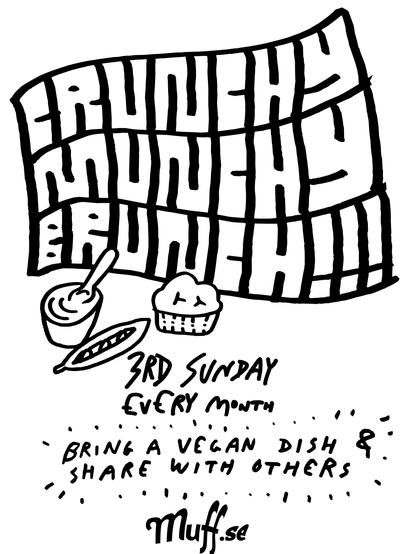 CRUNCHY
MUNCHY
BRUNCH!!!
3RD SUNDAY
EVERY MONTH
BRING A VEGAN DISH &
SHARE WITH OTHERS
Muff.se